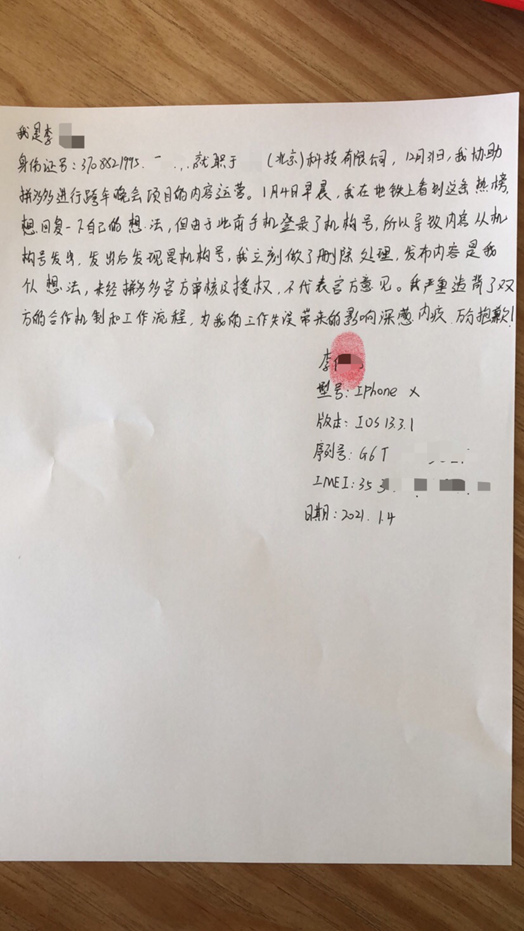 我是李
身份证号:3708821995. 就职于 (北京)科技有限公司,12月31日,我协助
拼多多进行跨年晚会项目的内容运营。1月4日早晨,我在地铁上看到这条热榜,
想回复一下自己的想法,但由于此前手机登录了机构号,所以导致内容从机
构号发出,发出后发现是机构号,我立刻做了删除处理,发布内容是我
个人想法,未经拼多多官方审核及授权,不代表官方意见。我严重违背了双
方的合作机制和工作流程,为我的工作失误带来的影响深感内疚,万分抱歉!
李
型号:IPhone X
版本:IOS 13.3.1
序列号:G6T
IMEI:353
日期:2021.1.4